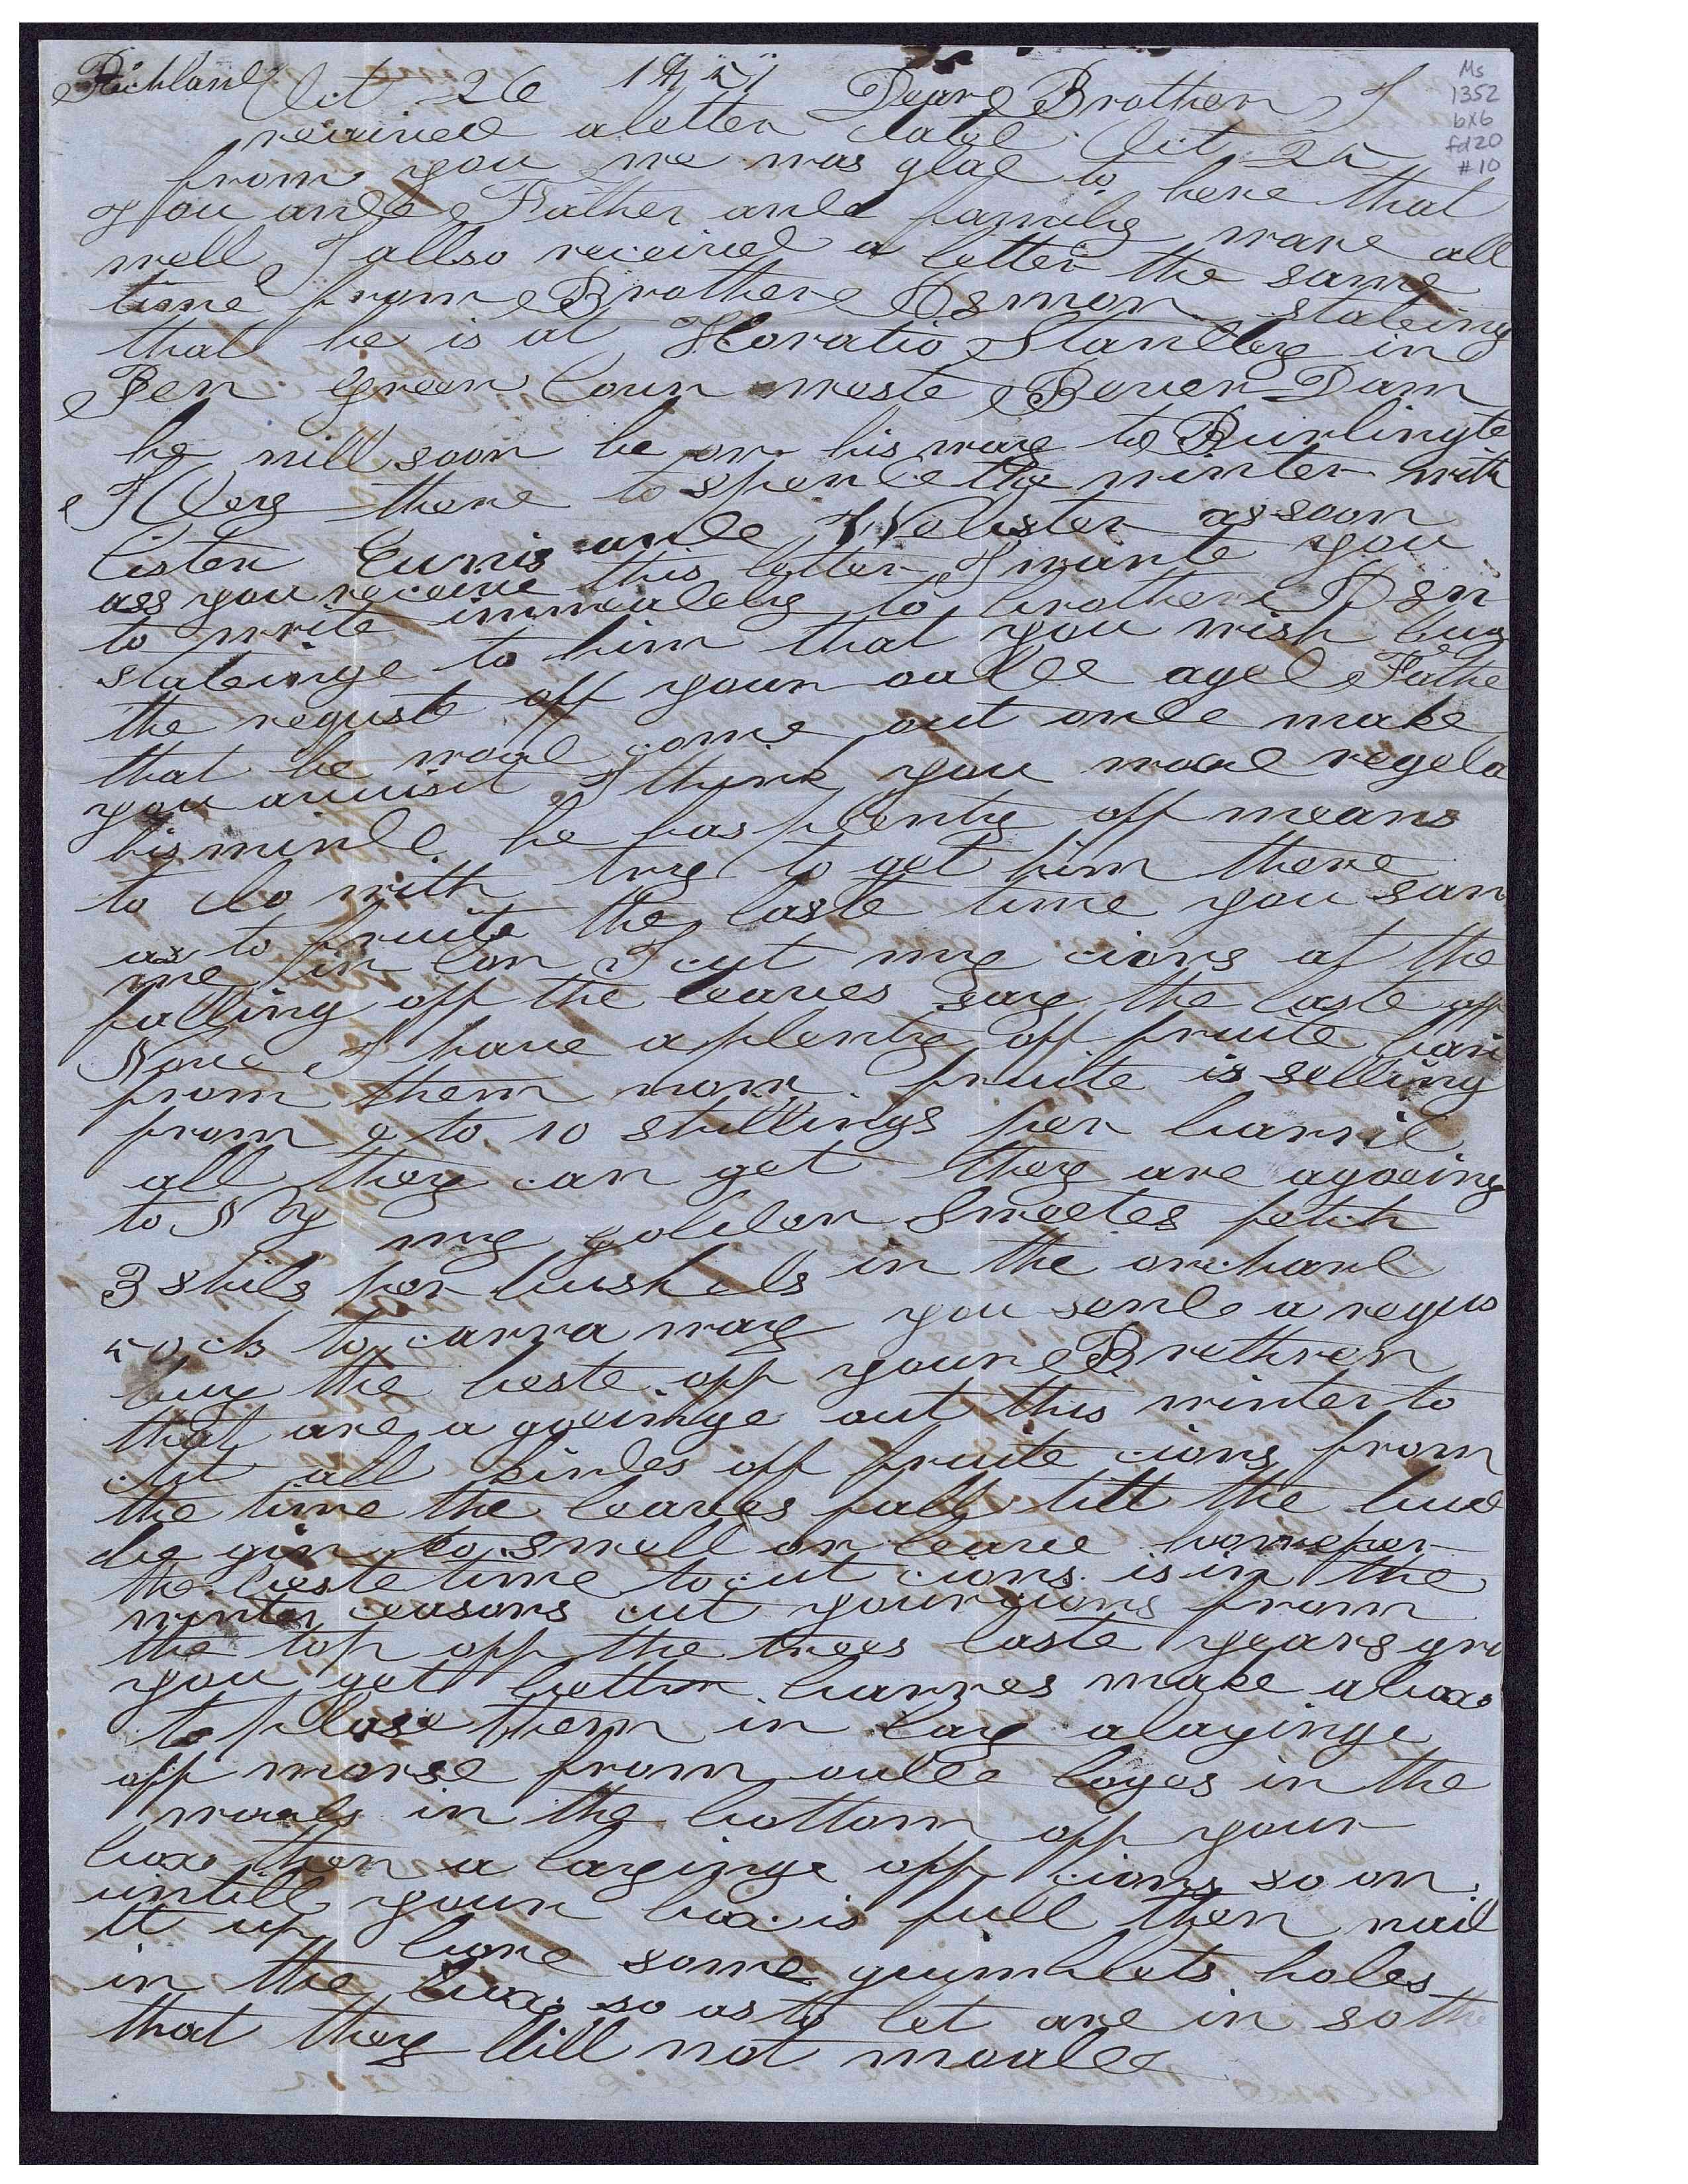 Richland Oct 26 18
Dear Brother I
received a letter dated Oct 25
from you we was glad to here that
you and Father and family ware all
well I allso received a letter the same
time from Brother stateing
that he is at Horatio in
green weste Bever Dam
he will soon be on his way to Burlingto
there to spende the winter with
Cister and as soon
ass you receive this letter I wante you
to write to brother
stateinge to him that you wish buy
the reguste off your oalde aged Fathe
that he woul come out ande make
you I think you
his minde he has plenty off means
to do with try to get him there
as to fruite the laste time you saw
me in I cut my cions at the
falling off the leaves say the laste off
Nove I have a plenty off fruite
from them now fruite is selling
from to 10 shillings per barril
all they can get they are agoeing
to N y my golden Sweetes fetch
3 shils per bushels in the orchard
50 cts to carra way you sende a regus
buy the beste off your Brethren
that are a goeinge out this winter to
cut all kindes off fruite cions from
the time the leaves fall till the bud
be gin to swell or leave
the beste time to cut cions is in the
winter ceasons cut your cions from
the top off the trees laste years gro
you get better make a box
to plase them in lay a layinge
off morse from oalde loges in the
woods in the bottom off your
box then a layinge off cions so on
untill your box is full then nail
it up bore some guimblets holes
in the box so as to let are in so th
that they will not moalde
Ms
1352
bx6
fd20
#10